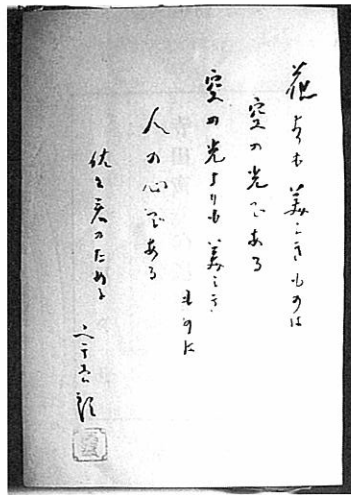 花よりも美しきものは
空の光である
空の光よりも美しき
ものは
人の心である
のために